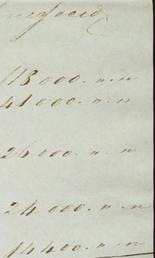 118 000. " "
41 000. " "
26 000. " "
24 000. " "
14 400. " "